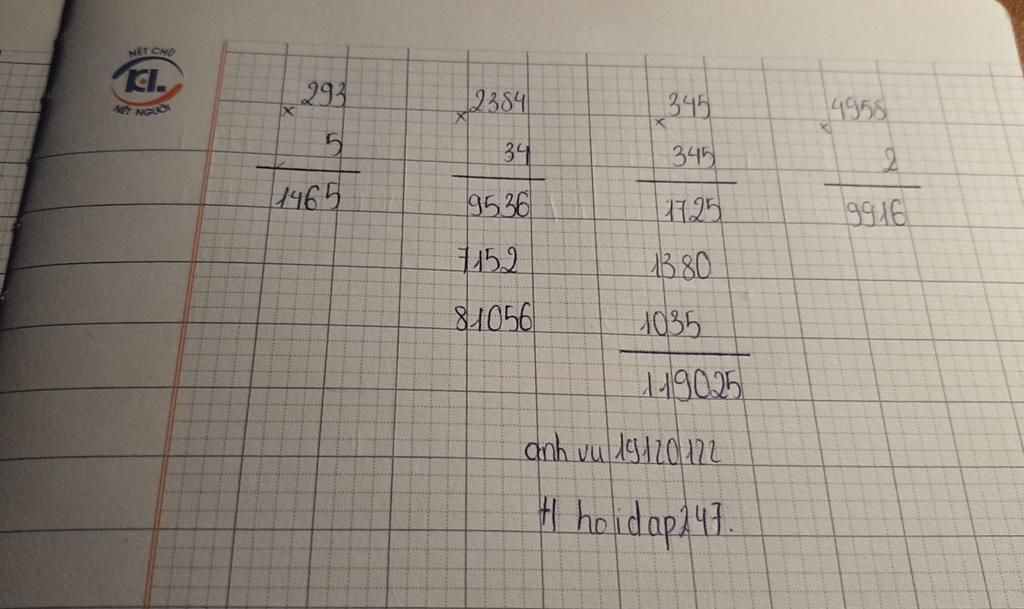 NÉT CHỮ
KL
NÉT NGƯỜI
× 293
5
1465
× 2384
34
9536
7152
81056
× 345
345
1725
1380
1035
119025
× 4958
2
9916
anh vu 19120122
H hoidap247.